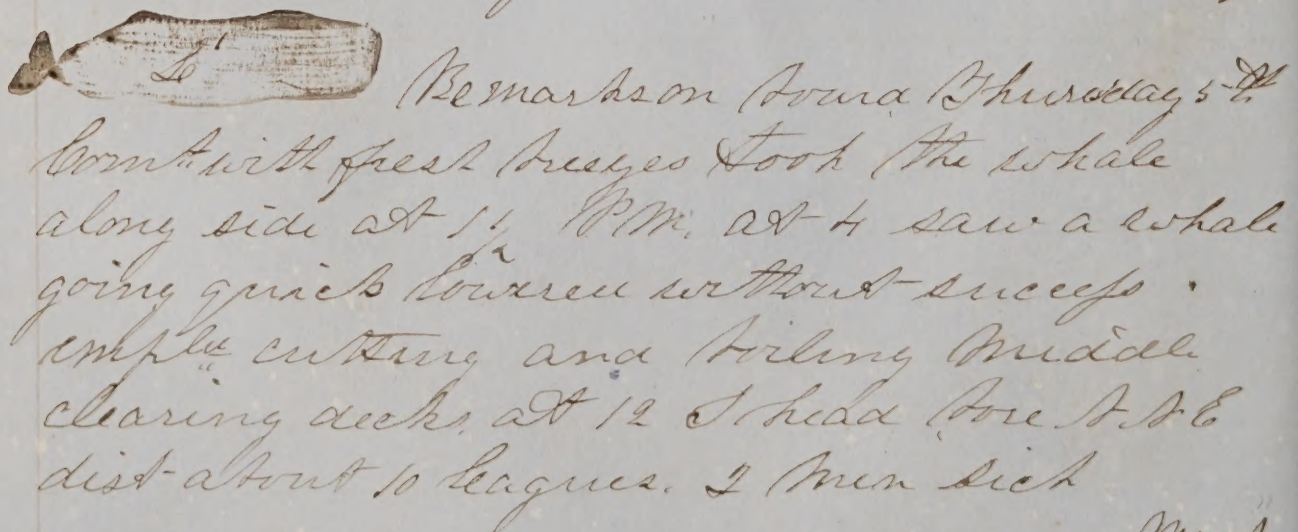 L
Remarks on board Thursday 5th
Comt with fresh breezes took the whale
along side at 1 1/2 PM. at 4 saw a whale
going quick lowered without success.
empld cutting and boiling Middle
clearing decks. at 12 S head bore N N E
dist about 10 leagues. 2 Men sick